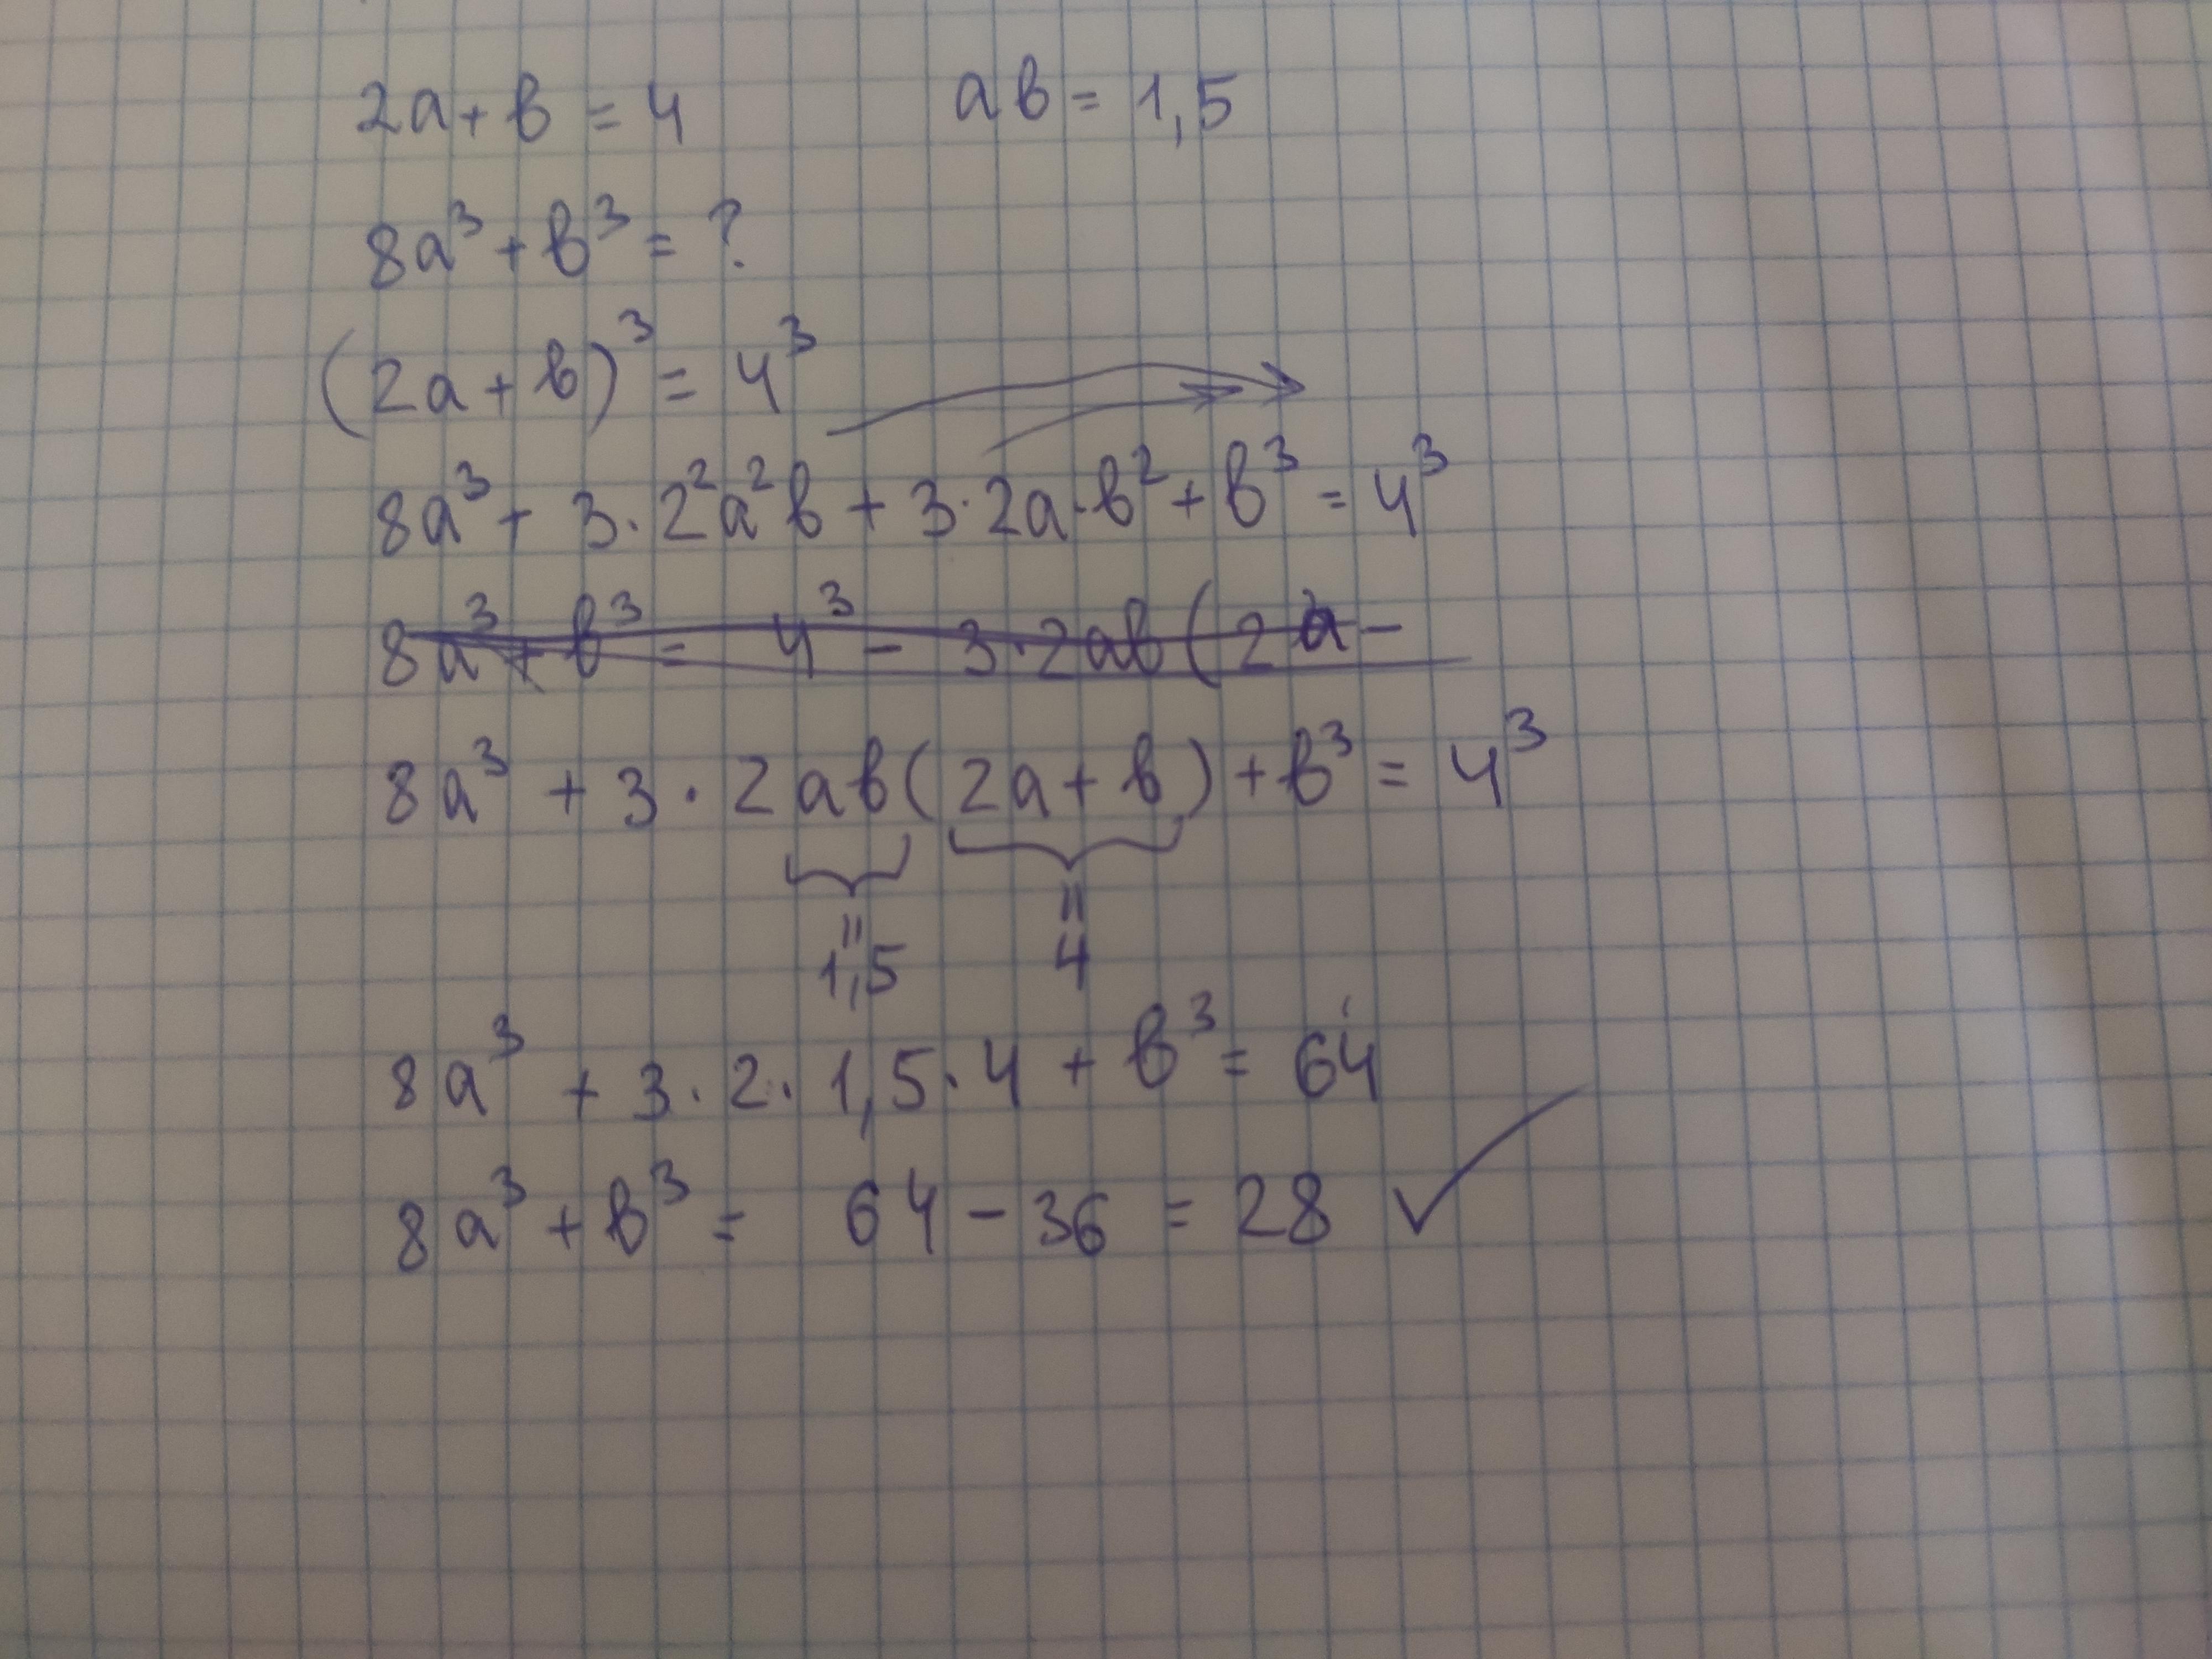 2a + b = 4 ab = 1,5
8a³ + b³ = ?
(2a + b)³ = 4³
8a³ + 3·2²a²b + 3·2a·b² + b³ = 4³
8a³ + b³ = 4³ - 3·2ab(2a -
8a³ + 3·2ab(2a + b) + b³ = 4³
= =
1,5 4
8a³ + 3·2·1,5·4 + b³ = 64
8a³ + b³ = 64 - 36 = 28 ✓